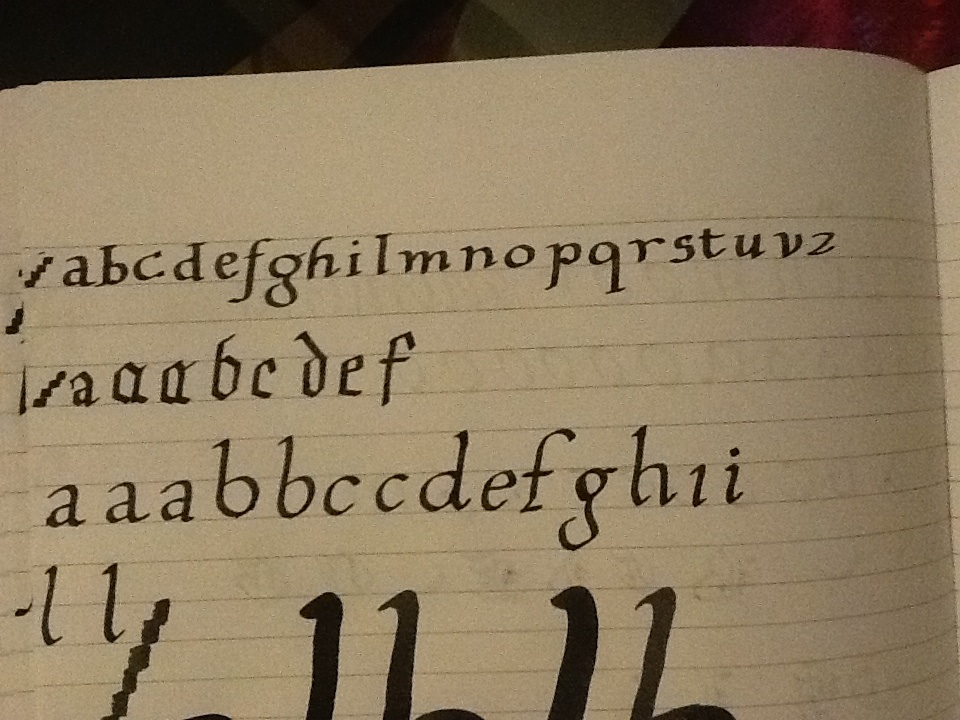 abcdefghilmnopqrstuvz
aaabcdef
aaabbccdefghıi
ll